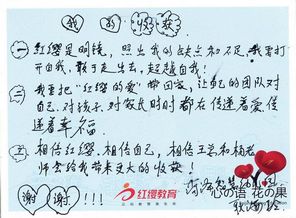 我的收获
一 红缨是明镜,照出我的缺点和不足,我要打
开自我,敢于走出去,超越自我!
二 我要把“红缨的爱”带回家,让自己的团队对
自己、对孩子、对家长时时都在传递着爱传
递着幸福。
三 相信红缨,相信自己,相信王总和杨老
师会给我带来更大的收获!
谢谢!!!
红缨教育
心の语 花の果